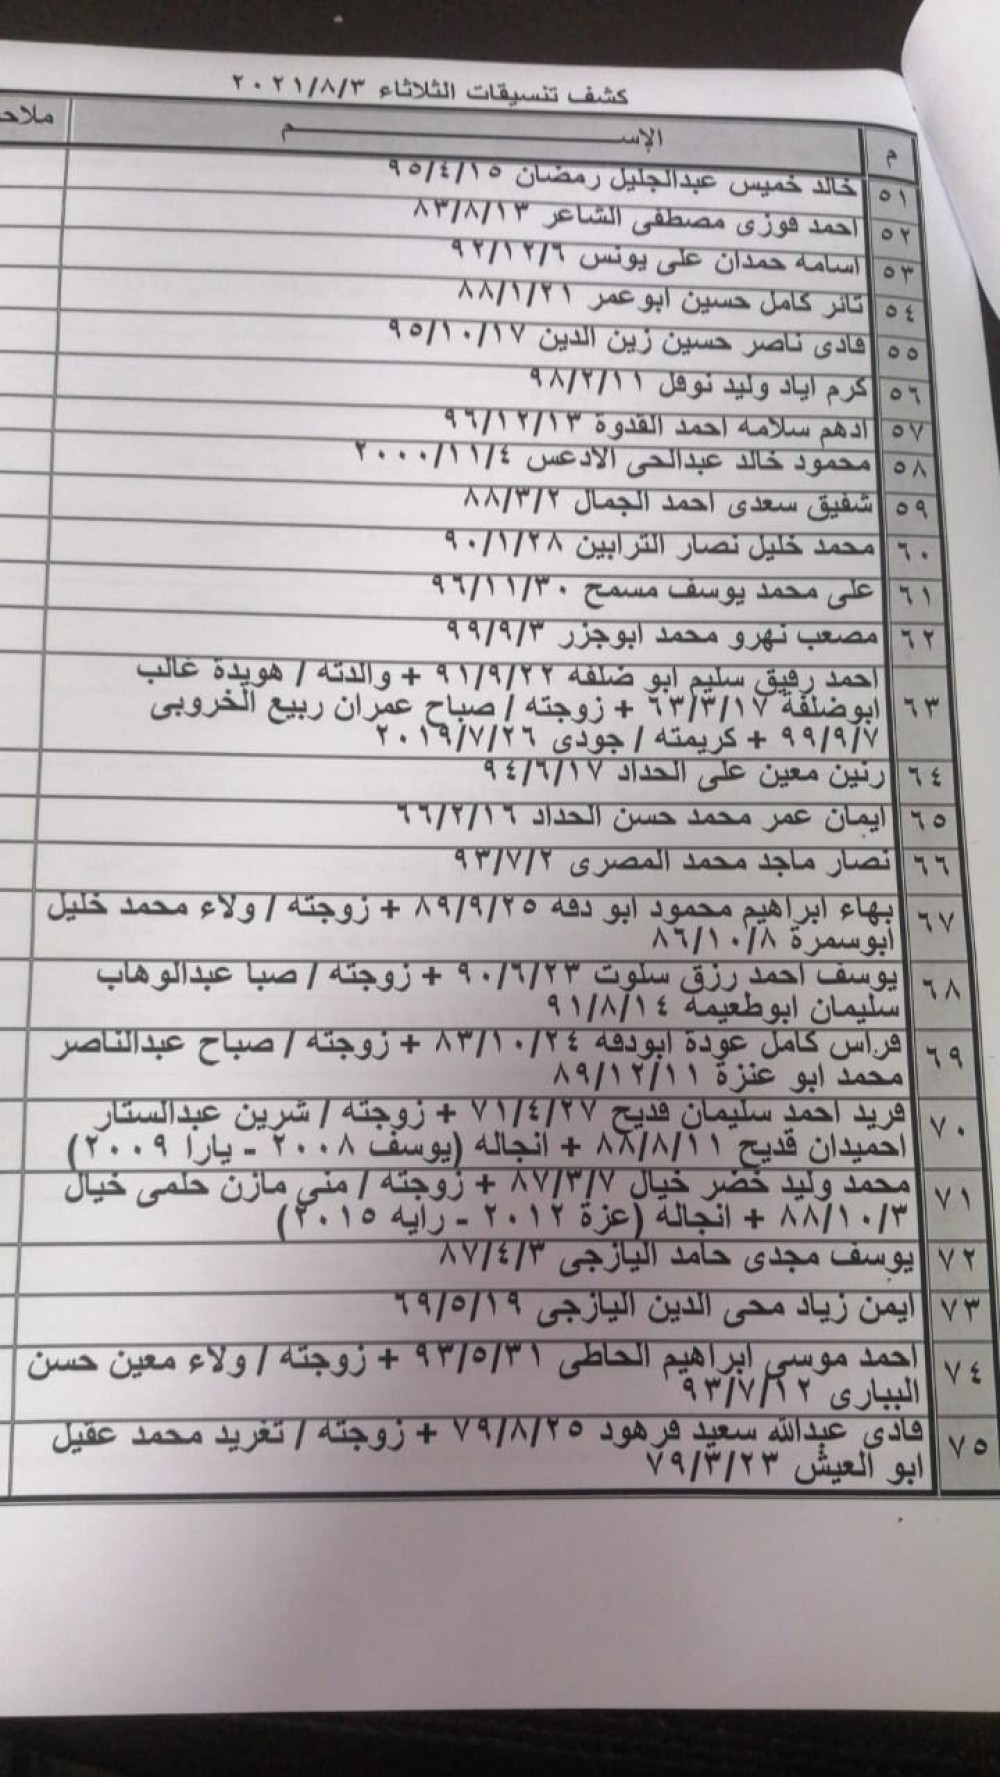 كشف تنسيقات الثلاثاء ٢٠٢١/٨/٣
م الإســـــــم ملاحـ
٥١ خالد خميس عبدالجليل رمضان ٩٥/٤/١٥
٥٢ احمد فوزى مصطفى الشاعر ٨٣/٨/١٣
٥٣ اسامه حمدان على يونس ٩٢/١٢/٦
٥٤ ثائر كامل حسين ابوعمر ٨٨/١/٢١
٥٥ فادى ناصر حسين زين الدين ٩٥/١٠/١٧
٥٦ كرم اياد وليد نوفل ٩٨/٢/١١
٥٧ ادهم سلامه احمد القدوة ٩٦/١٢/١٣
٥٨ محمود خالد عبدالحى الادعس ٢٠٠٠/١١/٤
٥٩ شفيق سعدى احمد الجمال ٨٨/٣/٢
٦٠ محمد خليل نصار الترابين ٩٠/١/٢٨
٦١ على محمد يوسف مسمح ٩٦/١١/٣٠
٦٢ مصعب نهرو محمد ابوجزر ٩٩/٩/٣
٦٣ احمد رفيق سليم ابو ضلفه ٩١/٩/٢٢ + والدته / هويدة غالب
ابوضلفة ٦٣/٣/١٧ + زوجته / صباح عمران ربيع الخروبى
٩٩/٩/٧ + كريمته / جودى ٢٠١٩/٧/٢٦
٦٤ رنين معين على الحداد ٩٤/٦/١٧
٦٥ ايمان عمر محمد حسن الحداد ٦٦/٢/١٦
٦٦ نصار ماجد محمد المصرى ٩٣/٧/٢
٦٧ بهاء ابراهيم محمود ابو دقه ٨٩/٩/٢٥ + زوجته / ولاء محمد خليل
ابوسمرة ٨٦/١٠/٨
٦٨ يوسف احمد رزق سلوت ٩٠/٦/٢٣ + زوجته / صبا عبدالوهاب
سليمان ابوطعيمة ٩١/٨/١٤
٦٩ فراس كامل عودة ابودقه ٨٣/١٠/٢٤ + زوجته / صباح عبدالناصر
محمد ابو عنزة ٨٩/١٢/١١
٧٠ فريد احمد سليمان قديح ٧١/٤/٢٧ + زوجته / شرين عبدالستار
احميدان قديح ٨٨/٨/١١ + انجاله (يوسف ٢٠٠٨ - يارا ٢٠٠٩)
٧١ محمد وليد خضر خيال ٨٧/٣/٧ + زوجته / مني مازن حلمى خيال
٨٨/١٠/٣ + انجاله (عزة ٢٠١٢ - رايه ٢٠١٥)
٧٢ يوسف مجدى حامد اليازجى ٨٧/٤/٣
٧٣ ايمن زياد محى الدين اليازجى ٦٩/٥/١٩
٧٤ احمد موسي ابراهيم الحاطى ٩٣/٥/٣١ + زوجته / ولاء معين حسن
البيارى ٩٣/٧/١٢
٧٥ فادى عبدالله سعيد فرهود ٧٩/٨/٢٥ + زوجته / تغريد محمد عقيل
ابو العيش ٧٩/٣/٢٣